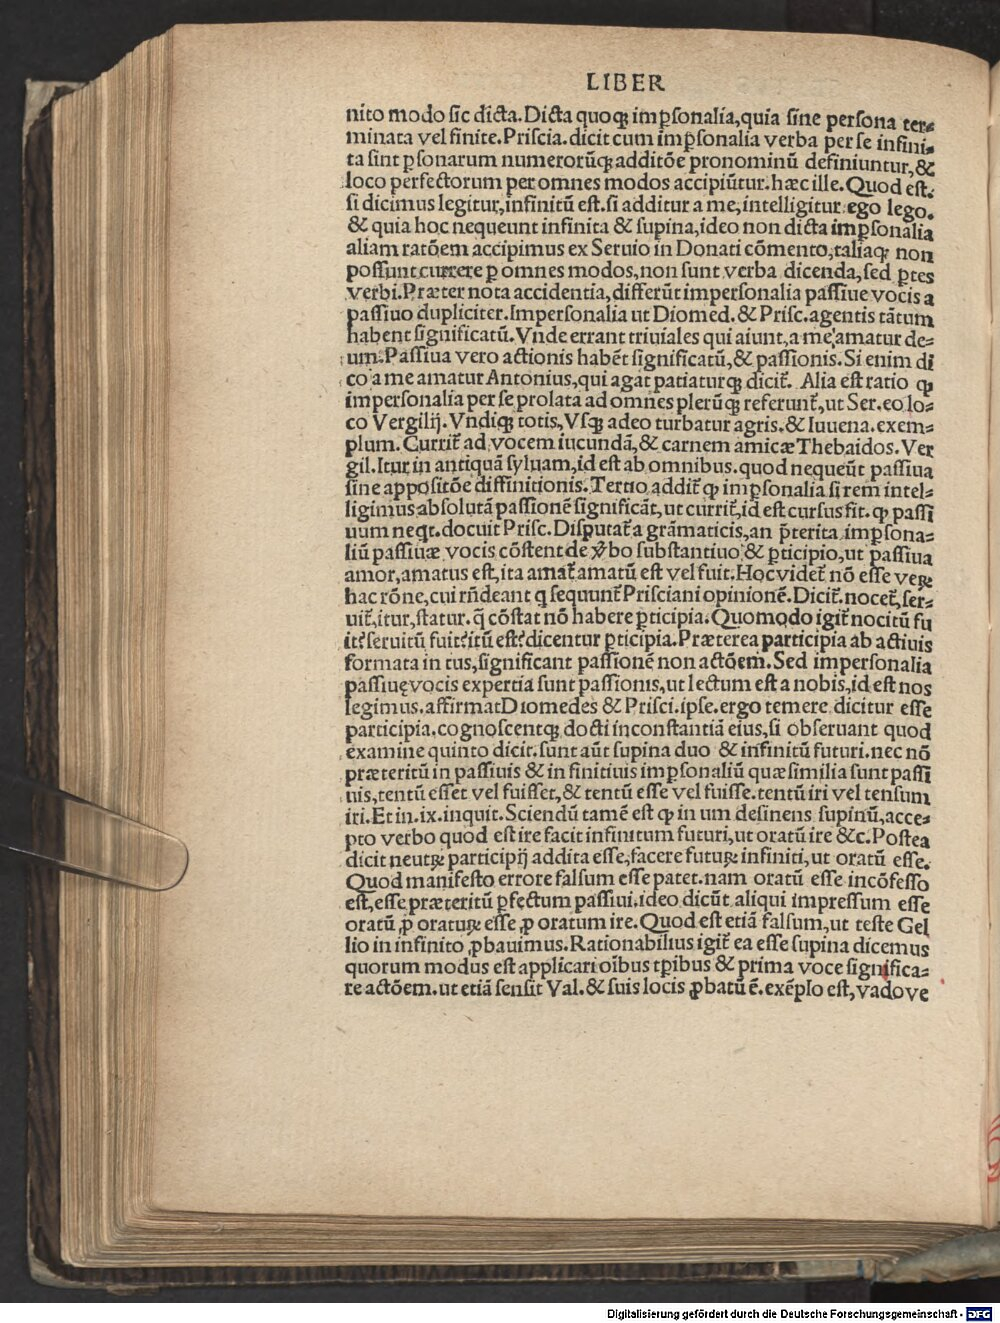 LIBER
nito modo sic dicta. Dicta quoqꝫ imꝑsonalia, quia sine persona ter⸗
minata vel finite. Priscia. dicit cum imꝑsonalia verba per se infini⸗
ta sint ꝑsonarum numerorūqꝫ additōe pronominū definiuntur, &
loco perfectorum per omnes modos accipiūtur. hæc ille. Quod est.
si dicimus legitur, infinitū est. si additur a me, intelligitur ego lego.
& quia hoc nequeunt infinita & supina, ideo non dicta imꝑsonalia
aliam ratōem accipimus ex Seruio in Donati cōmento, taliaqꝫ non
possunt currere ꝑ omnes modos, non sunt verba dicenda, sed ꝑtes
verbi. Præter nota accidentia, differūt impersonalia passiue vocis a
passiuo dupliciter. Impersonalia ut Diomed. & Prisc. agentis tātum
habent significatū. Vnde errant triuiales qui aiunt, a me amatur de⸗
um. Passiua vero actionis habēt significatū, & passionis. Si enim di
co a me amatur Antonius, qui agat patiaturqꝫ dicit᷑. Alia est ratio ꝙ
impersonalia per se prolata ad omnes plerūqꝫ referunt᷑, ut Ser. eo lo⸗
co Vergilij. Vndiqꝫ totis, Vsqꝫ adeo turbatur agris. & Iuuena. exem⸗
plum. Currit᷑ ad vocem iucundā, & carnem amicæ Thebaidos. Ver
gil. Itur in antiquā syluam, id est ab omnibus. quod nequeūt passiua
sine appositōe diffinitionis. Tertio addit᷑ ꝙ imꝑsonalia si rem intel⸗
ligimus absolutā passionē significāt, ut currit᷑, id est cursus fit. ꝙ passi
uum neqt. docuit Prisc. Disputat᷑ a grāmaticis, an p̄terita imꝑsona⸗
liū passiuæ vocis cōstent de v̆bo substantiuo & ꝑticipio, ut passiua
amor, amatus est, ita amat᷑ amatū est vel fuit. Hoc videt᷑ nō esse veꝝ
hac rōne, cui rn̄deant q sequunt᷑ Prisciani opinionē. Dicit᷑. nocet᷑, ser⸗
uit᷑, itur, statur. q̄ cōstat nō habere ꝑticipia. Quomodo igit᷑ nocitū fu
it? seruitū fuit? itū est? dicentur ꝑticipia. Præterea participia ab actiuis
formata in tus, significant passionē non actōem. Sed impersonalia
passiuę vocis expertia sunt passionis, ut lectum est a nobis, id est nos
legimus. affirmat Diomedes & Prisci. ipse. ergo temere dicitur esse
participia. cognoscentqꝫ docti inconstantiā eius, si obseruant quod
examine quinto dicit. sunt aūt supina duo & infinitū futuri. nec nō
præteritū in passiuis & in finitiuis imꝑsonaliū quæ similia sunt passi
uis, tentū esset vel fuisset, & tentū esse vel fuisse. tentū iri vel tensum
iri. Et in. ix. inquit. Sciendū tamē est ꝙ in um desinens supinū, acce⸗
pto verbo quod est ire facit infinitum futuri, ut oratū ire &c. Postea
dicit neutꝝ participij addita esse, facere futuꝝ infiniti, ut oratū esse.
Quod manifesto errore falsum esse patet. nam oratū esse incōfesso
est, esse præteritū ꝑfectum passiui. ideo dicūt aliqui impressum esse
oratū ꝓ oratuꝝ esse ꝓ oratum ire. Quod est etiā falsum, ut teste Gel
lio in infinito ꝓbauimus. Rationabilius igit᷑ ea esse supina dicemus
quorum modus est applicari oībus tꝑibus & prima voce significa⸗
re actōem. ut etiā sensit Val. & suis locis ꝓbatū ē. exēplo est, vado ve
Digitalisierung gefördert durch die Deutsche Forschungsgemeinschaft - DFG